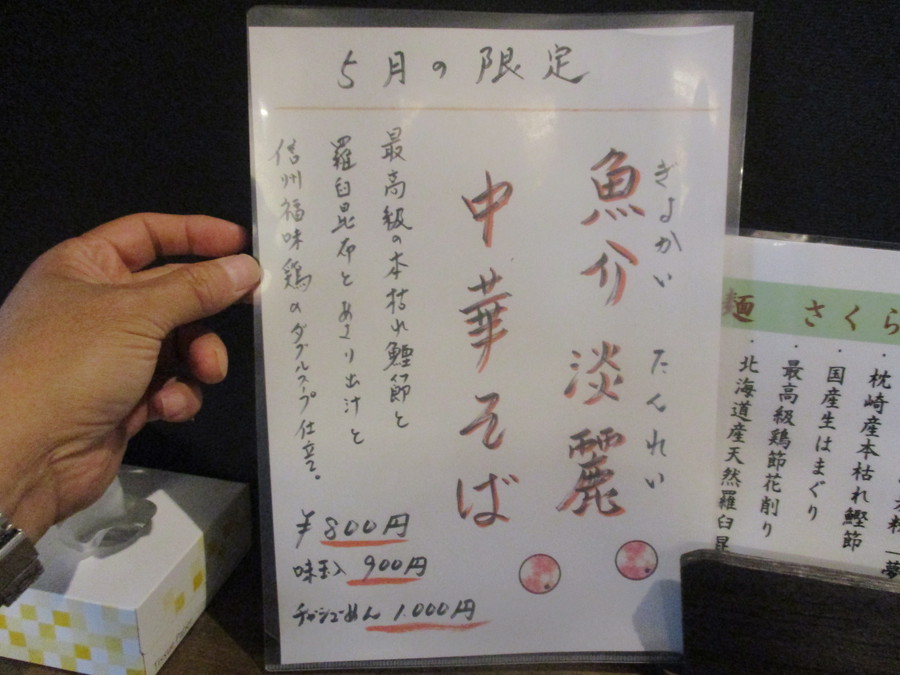 5月の限定
ぎょかい たんれい
魚介淡麗
中華そば
最高級の本枯れ鰹節と
羅臼昆布とあさり出汁と
信州福味鶏のダブルスープ仕立て。
¥800円
味玉入 900円
チャーシューめん 1.000円
麺 さくら
枕崎産本枯れ鰹節
国産生はまぐり
最高級鶏節花削り
北海道産天然羅臼昆